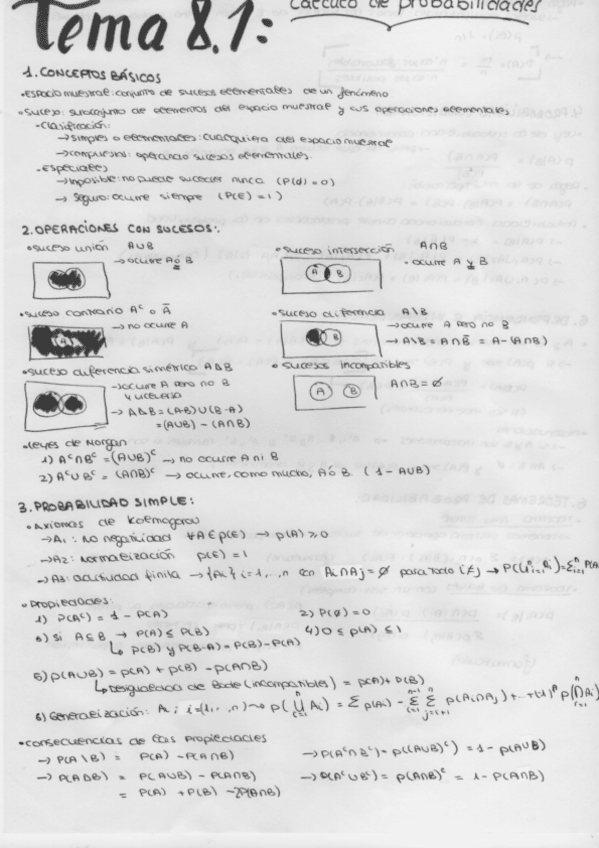 Tema 8.1: Cálculo de probabilidades
1. CONCEPTOS BÁSICOS
• Espacio muestral: conjunto de sucesos elementales de un fenómeno
• Suceso: subconjunto de elementos del espacio muestral y sus operaciones elementales
- Clasificación:
→ simples o elementales: cualquiera del espacio muestral
→ compuestos: operando sucesos elementales.
- Especiales
→ Imposible: no puede suceder nunca (P(∅) = 0)
→ Seguro: ocurre siempre (P(E) = 1)
2. OPERACIONES CON SUCESOS:
• suceso unión A∪B
→ ocurre A ó B
• suceso intersección A∩B
A B
• ocurre A y B
• suceso contrario Aᶜ o Ā
(A)
→ no ocurre A
• suceso diferencia A\B
B
→ ocurre A pero no B
→ A\B = A∩B̄ = A-(A∩B)
• suceso diferencia simétrica AΔB
→ ocurre A pero no B
y viceversa
→ AΔB = (A-B)∪(B-A)
= (A∪B) - (A∩B)
• sucesos incompatibles
A B
A∩B = ∅
• Leyes de Morgan
1) Aᶜ∩Bᶜ = (A∪B)ᶜ → no ocurre A ni B
2) Aᶜ∪Bᶜ = (A∩B)ᶜ → ocurre, como mucho, A ó B (1 - A∪B)
3. PROBABILIDAD SIMPLE:
• Axiomas de Kolmogorov
→ A₁: No negatividad ∀A∈p(E) → p(A) ≥ 0
→ A₂: Normatización p(E) = 1
→ A₃: aditividad finita → {Ai} i=1,..,n con Ai∩Aj = ∅ para todo (≠) → P(∪ⁿᵢ₌₁ Ai) = Σⁿᵢ₌₁ P(A
• Propiedades:
1) P(Aᶜ) = 1 - P(A) 2) P(∅) = 0
3) Si A⊆B → P(A) ≤ P(B) 4) 0 ≤ p(A) ≤ 1
↳ p(B) y P(B-A) = P(B)-P(A)
5) p(A∪B) = p(A) + p(B) - p(A∩B)
↳ Desigualdad de Boole (incompatibles) = p(A)+P(B)
6) Generalización: Ai ; i=(1,..,n) → p(∪ⁿᵢ₌₁ Ai) = Σ p(Ai) - Σⁿ⁻¹ᵢ₌₁ Σⁿⱼ₌ᵢ₊₁ p(Ai∩Aj) + ..+(-1)ⁿ p(∩ⁿᵢ₌₁ Ai)
• Consecuencias de las propiedades
→ P(A\B) = P(A) - P(A∩B) → P(Aᶜ∩Bᶜ) = p((A∪B)ᶜ) = 1 - p(A∪B)
→ P(AΔB) = P(A∪B) - P(A∩B) → P(Aᶜ∪Bᶜ) = p(A∩B)ᶜ = 1 - P(A∩B)
= P(A) + P(B) - 2P(A∩B)